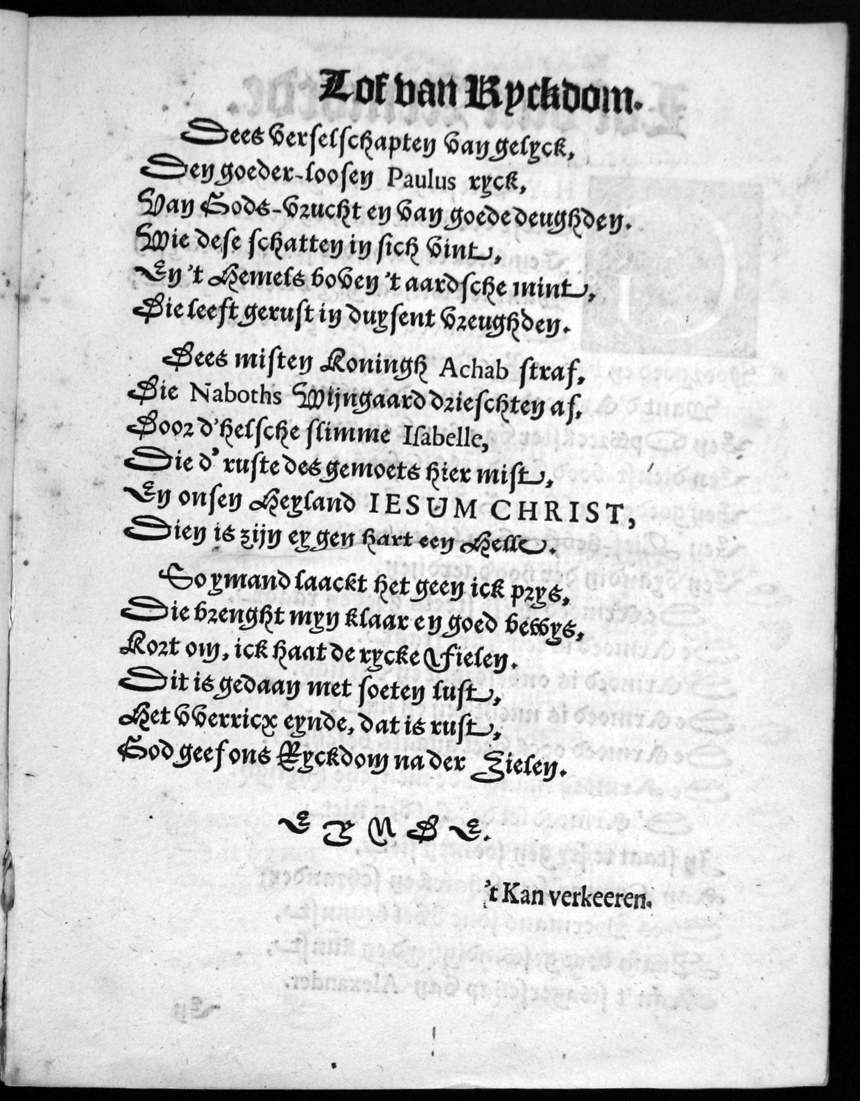 Lof van Ryckdom.
Dees verselschapten van gelyck,
Den goeder-loosen Paulus ryck,
Van Gods-vrucht en van goede deughden.
Wie dese schatten in sich vint,
En 't Hemels boven 't aardsche mint,
Die leeft gerust in duysent vreughden.
Dees misten Koningh Achab straf,
Die Naboths Wijngaard drieschten af,
Door d'helsche slimme Isabelle,
Die d' ruste des gemoets hier mist,
En onsen Heyland IESUM CHRIST,
Dien is zijn eygen hart een Helle.
So ymand laackt het geen ick prys,
Die brenght myn klaar en goed bewys,
Kort om, ick haat de rycke Fielen.
Dit is gedaan met soeten lust,
Het VVerricx eynde, dat is rust,
God geef ons Ryckdom na der Zielen.
EYNDE.
't Kan verkeeren.